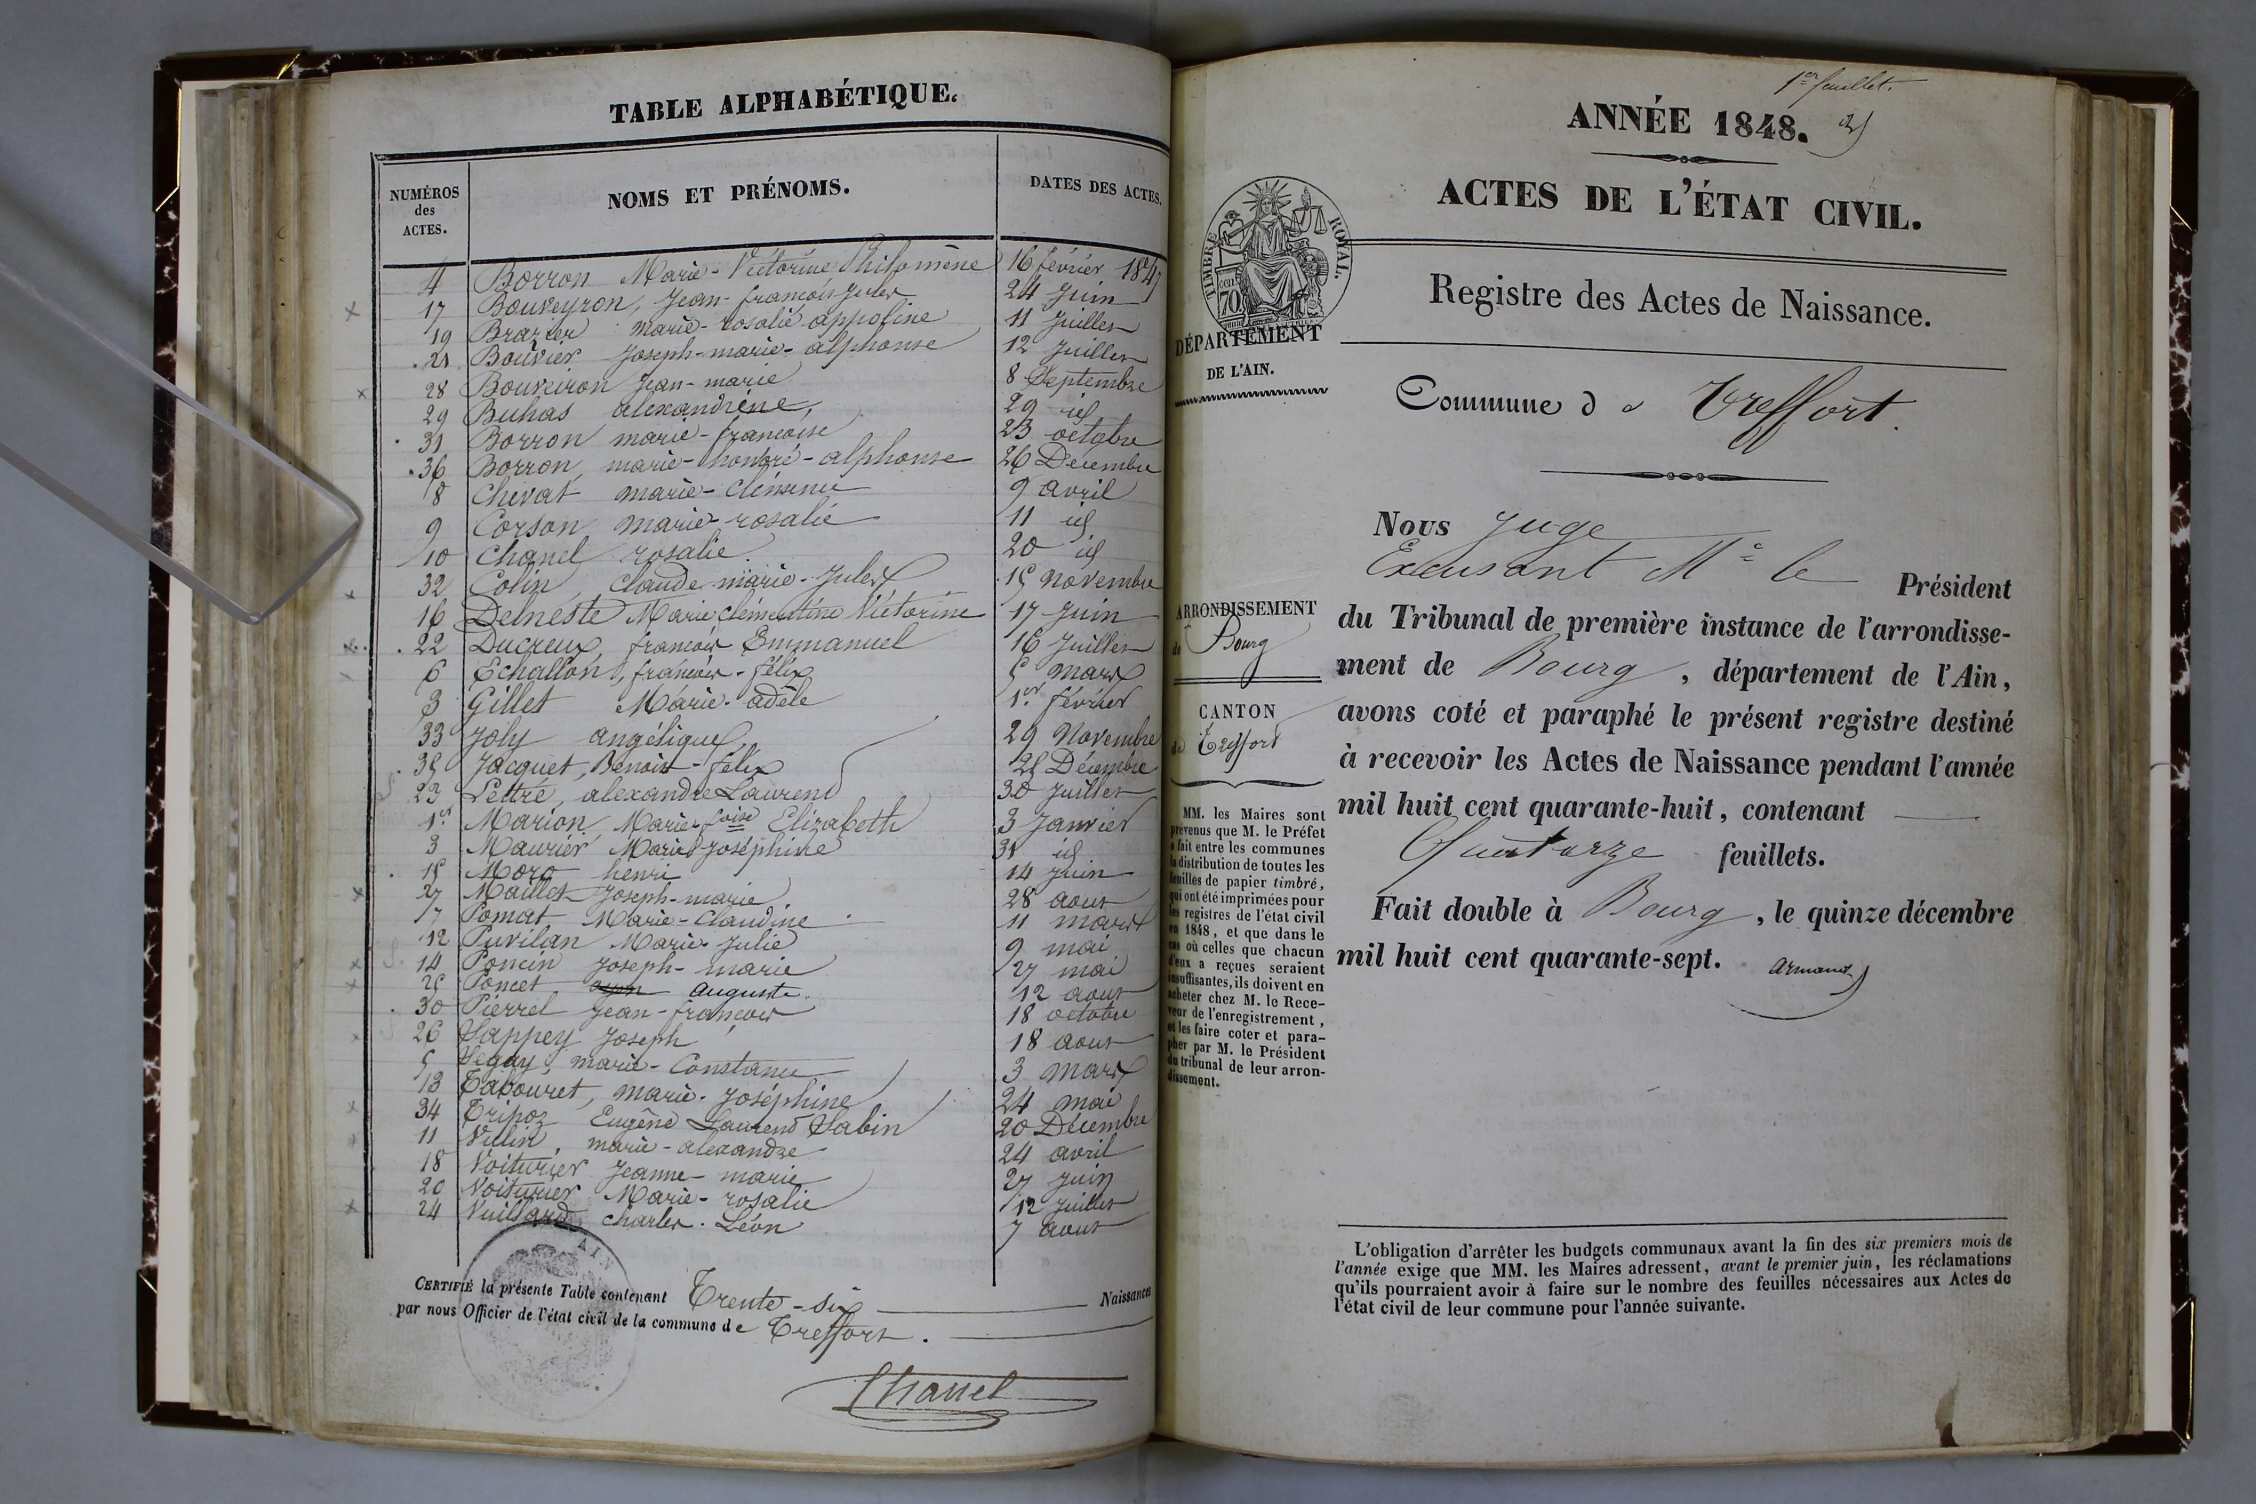 TABLE ALPHABÉTIQUE.
NUMÉROS des ACTES. NOMS ET PRÉNOMS. DATES DES ACTES.
4 Borron Marie-Victorine Philomène 16 février 1847
17 Bouveyron, Jean-françois Jules 24 Juin
19 Brazier marie-rosalie appoline 11 Juillet
21 Bouvier Joseph-marie-alphonse 12 Juillet
28 Bouveiron Jean-marie 8 Septembre
29 Buhas alexandrine, 29 id
31 Borron marie-françoise 23 octobre
36 Borron marie-honoré-alphonse 26 Décembre
8 Chevat marie-Clémence 9 avril
9 Corson marie-rosalie 11 id
10 Chanel rosalie 20 id
32 Colin, Claude-marie-Jules 15 novembre
16 Delneste Marie Clémentine Victorine 17 Juin
22 Ducreux, françois Emmanuel 16 Juillet
6 Echallon, françois-félix 5 mars
3 Gillet Marie-adèle 1er février
33 Joly angélique 29 Novembre
35 Jacquet, Benoit-félix 25 Décembre
23 Lettré, alexandre Laurent 30 Juillet
1er Marion, Marie foise Elizabeth 3 Janvier
3 Maurier Marie Joséphine 31 id
15 Moro henri 14 Juin
27 Maillet Joseph-marie 28 aout
7 Pomat Marie-Claudine 11 mars
12 Puvilan Marie Julie 9 mai
14 Poncin Joseph-marie 27 mai
25 Poncet auguste. 12 aout
30 Pierrel Jean-françois 18 octobre
26 Sappey Joseph 18 aout
5 Seguy marie-Constance 3 mars
13 Tabouret, marie-Joséphine 24 mai
34 Tripoz Eugêne Laurent Sabin 20 Décembre
11 Vulin, marie-alexandre 24 avril
18 Voiturier Jeanne-marie 27 Juin
20 Voiturier Marie-rosalie 12 Juillet
24 Vuillard charles-Léon 7 aout
AIN
CERTIFIÉ la présente Table contenant Trente-six Naissances
par nous Officier de l'état civil de la commune de Treffort.
Chanel
1er feuillet.
ANNÉE 1848.
ACTES DE L'ÉTAT CIVIL.
TIMBRE ROYAL.
70 cen
Registre des Actes de Naissance.
DÉPARTEMENT
DE L'AIN.
Commune de Treffort.
ARRONDISSEMENT
de Bourg
CANTON
de Treffort
MM. les Maires sont
prévenus que M. le Préfet
a fait entre les communes
la distribution de toutes les
feuilles de papier timbré,
qui ont été imprimées pour
les registres de l'état civil
en 1848, et que dans le
cas où celles que chacun
d'eux a reçues seraient
insuffisantes, ils doivent en
acheter chez M. le Rece-
veur de l'enregistrement,
et les faire coter et para-
pher par M. le Président
du tribunal de leur arron-
dissement.
Nous Juge
Excusant Mr le Président
du Tribunal de première instance de l'arrondisse-
ment de Bourg, département de l'Ain,
avons coté et paraphé le présent registre destiné
à recevoir les Actes de Naissance pendant l'année
mil huit cent quarante-huit, contenant
Quatorze feuillets.
Fait double à Bourg, le quinze décembre
mil huit cent quarante-sept.
Armand
L'obligation d'arrêter les budgets communaux avant la fin des six premiers mois de
l'année exige que MM. les Maires adressent, avant le premier juin, les réclamations
qu'ils pourraient avoir à faire sur le nombre des feuilles nécessaires aux Actes de
l'état civil de leur commune pour l'année suivante.